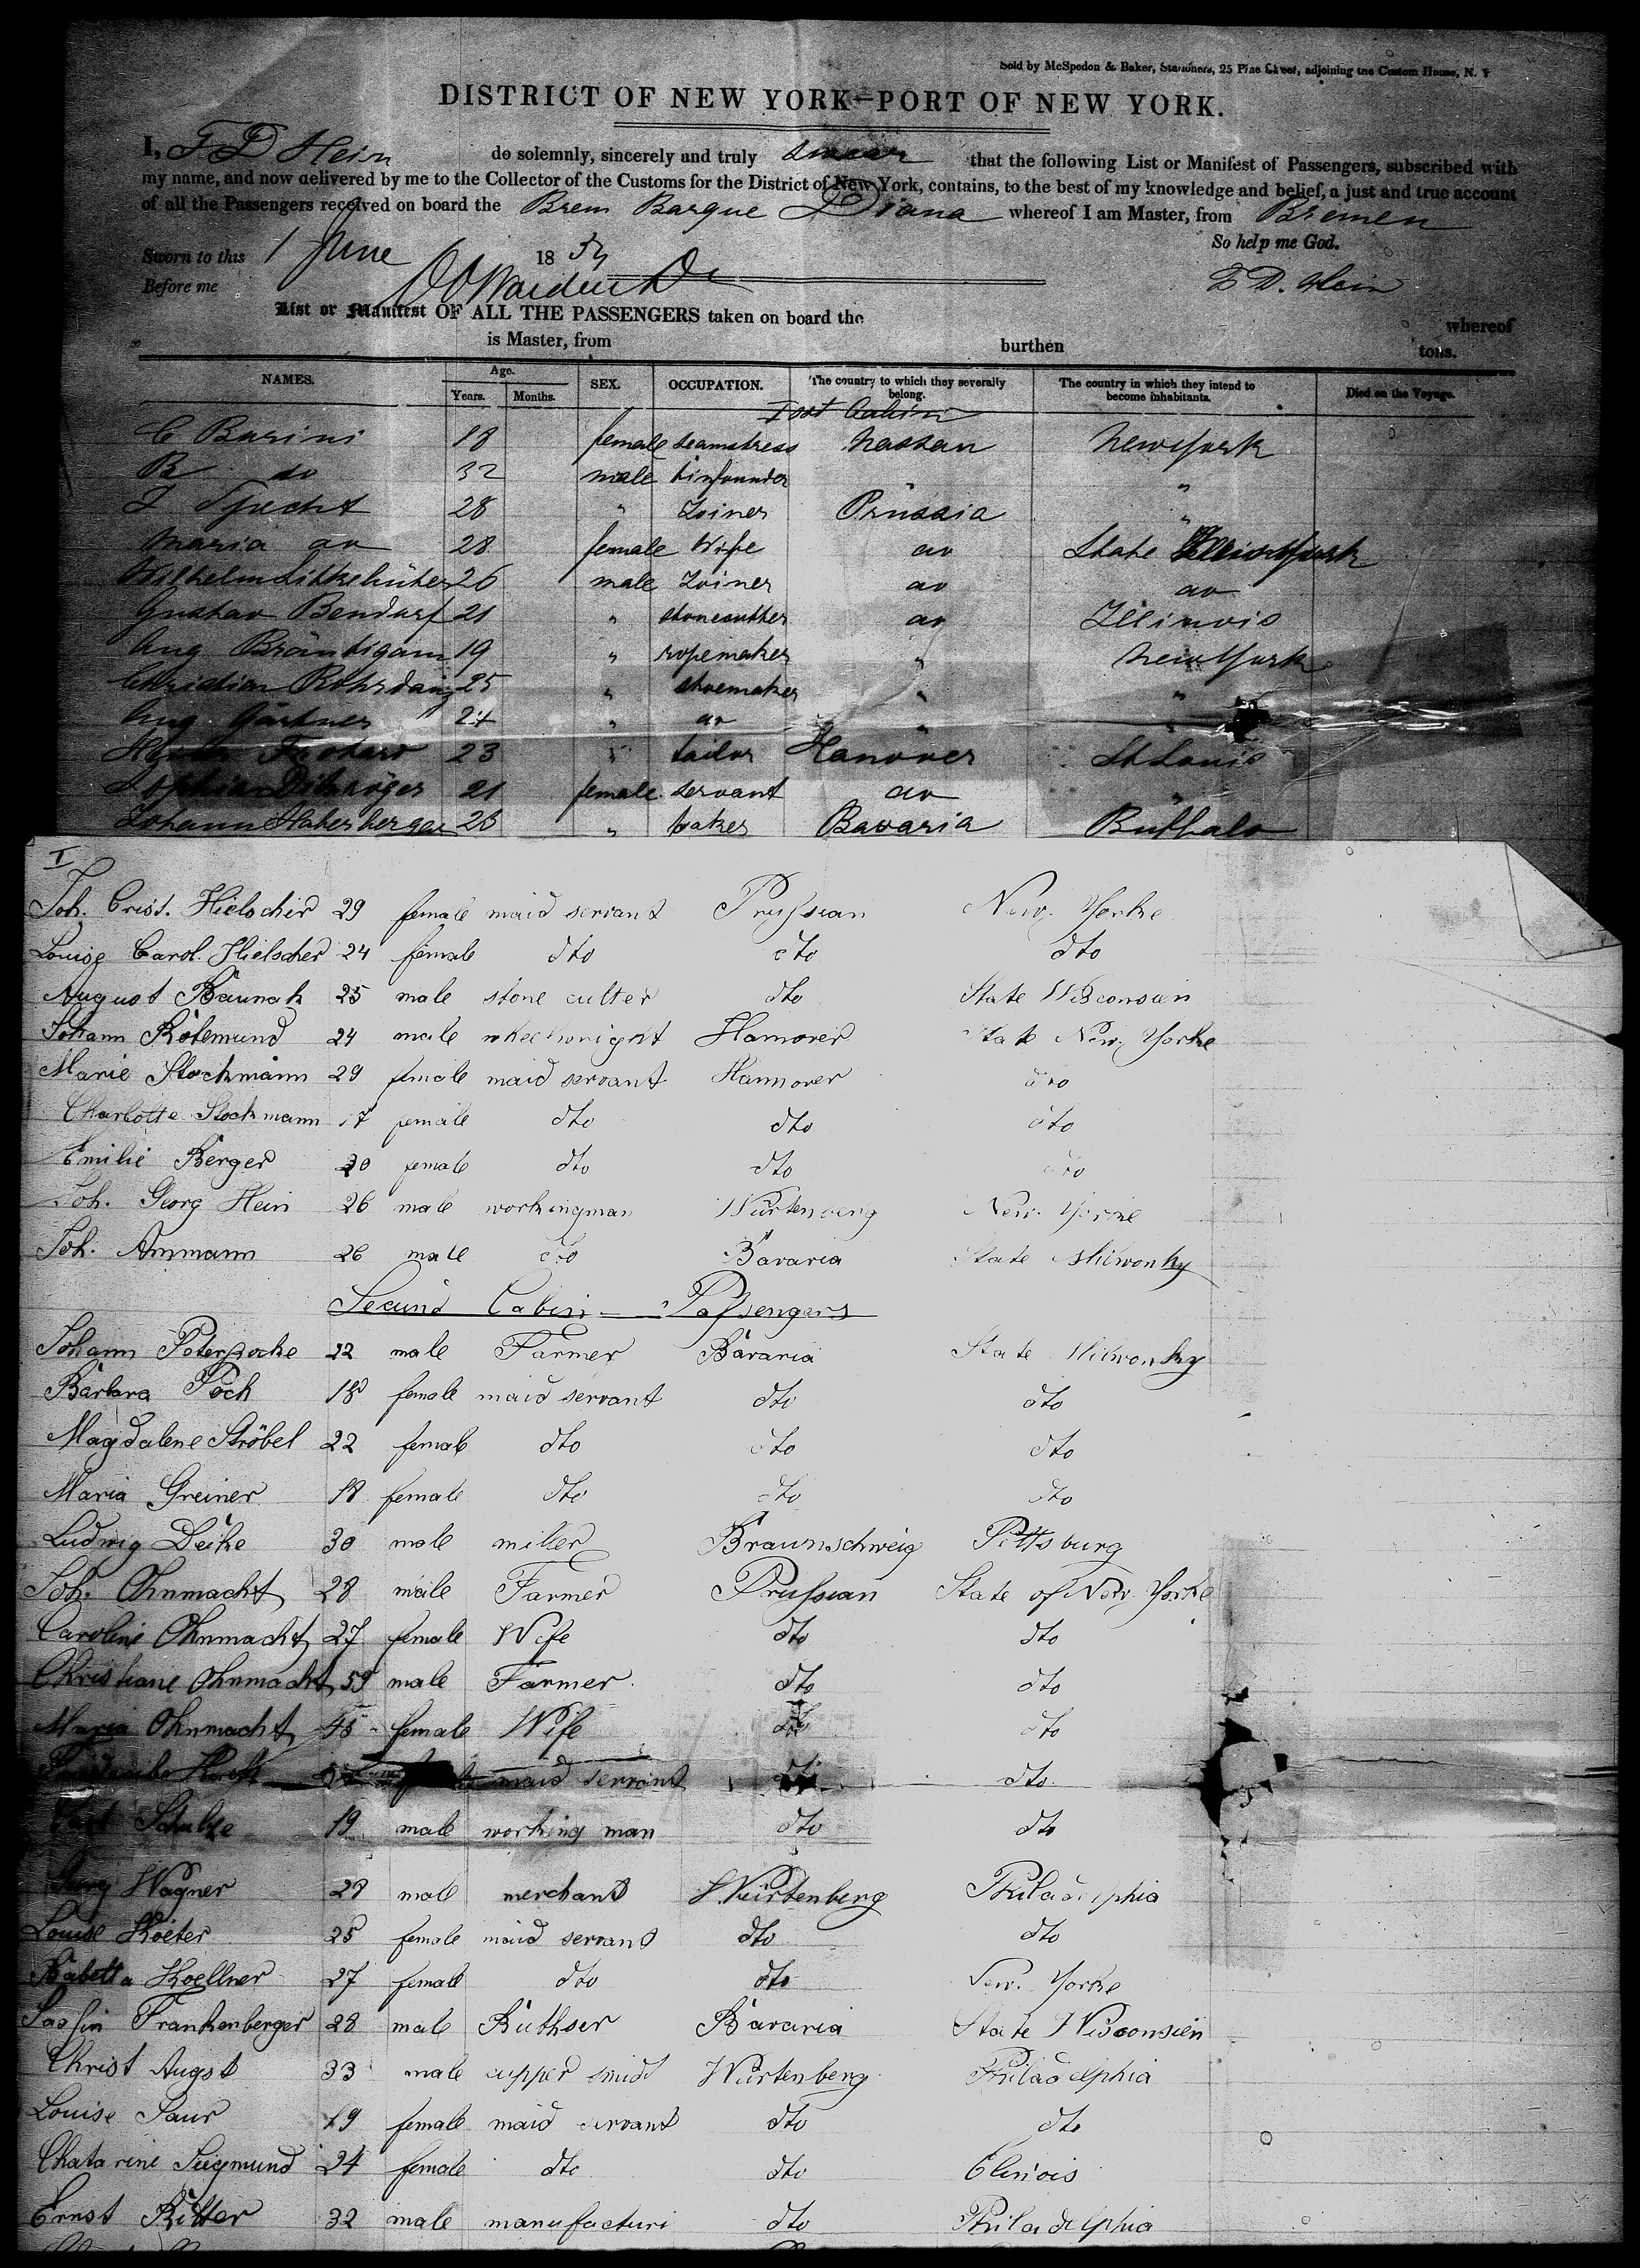 Sold by McSpedon & Baker, Stationers, 25 Pine Street, adjoining the Custom House, N. Y
DISTRICT OF NEW YORK—PORT OF NEW YORK.
I, F D Hein do solemnly, sincerely and truly swear that the following List or Manifest of Passengers, subscribed with
my name, and now delivered by me to the Collector of the Customs for the District of New York, contains, to the best of my knowledge and belief, a just and true account
of all the Passengers received on board the Brem Barque Diana whereof I am Master, from Bremen
So help me God.
Sworn to this 1 June 18
Before me
F D. Hein
List or Manifest OF ALL THE PASSENGERS taken on board the whereof
is Master, from burthen tons.
NAMES. Age. Years. Months. SEX. OCCUPATION. The country to which they severally belong. The country in which they intend to become inhabitants. Died on the Voyage.
C Barini 18 female seamstress Nassau New York
B do 32 male tinfounder " "
Specht 28 " Joiner Prussia "
Maria do 28 female Wife do State
Wilhelm 26 male Joiner do do
Gustav Bendorf 21 " stonecutther do Illinois
Aug Bräutigam 19 " ropemaker " New York
Christian 25 " shoemaker " "
Aug Gärtner 24 " do " "
23 " tailor Hanover St Louis
21 female servant do "
Johann Habersberger 23 " baker Bavaria Buffalo
I
Joh. Crist. Hielscher 29 female maid servant Prussian New. Yorke
Louise Carol. Hielscher 24 female dto dto dto
August Baunak 25 male stone culter dto State Wisconsin
Johann Rötemund 24 male wheelwright Hannover State New. Yorke
Marie Stockmann 29 female maid servant Hannover dto
Charlotte Stockmann 17 female dto dto dto
Emilie Berger 20 female dto dto dto
Joh. Georg Hein 26 male workingman Würtenberg New. Yorke
Joh. Ammann 26 male dto Bavaria State Milwonky
Secund Cabin Passengers
Johann 22 male Farmer Bavaria State Milwonky
Barbara Poch 18 female maid servant dto dto
Magdalene Ströbel 22 female dto dto dto
Maria Greiner 18 female dto dto dto
Ludwig Deike 30 male miller Braunschweig Pittsburg
Joh. Ohnmacht 28 male Farmer Prussian State of New. Yorke
Caroline Ohnmacht 27 female Wife dto dto
Christiane Ohnmacht 59 male Farmer. dto dto
Maria Ohnmacht 45 female Wife dto dto
maid servant dto dto
Carl Schulze 19 male working man dto dto
Wagner 29 male merchant Würtenberg Philadelphia
Louise Koeter 25 female maid servant dto dto
Babetta Koellner 27 female dto dto New. Yorke
Frankenberger 28 male Buthser Bavaria State Wisconsien
Christ Augst 33 male cupper smidt Würtenberg Philadelphia
Louise Saur 19 female maid servant dto dto
Chatarine Siegmund 24 female dto dto Elinois
Ernst Ritter 32 male manufacturi dto Philadelphia